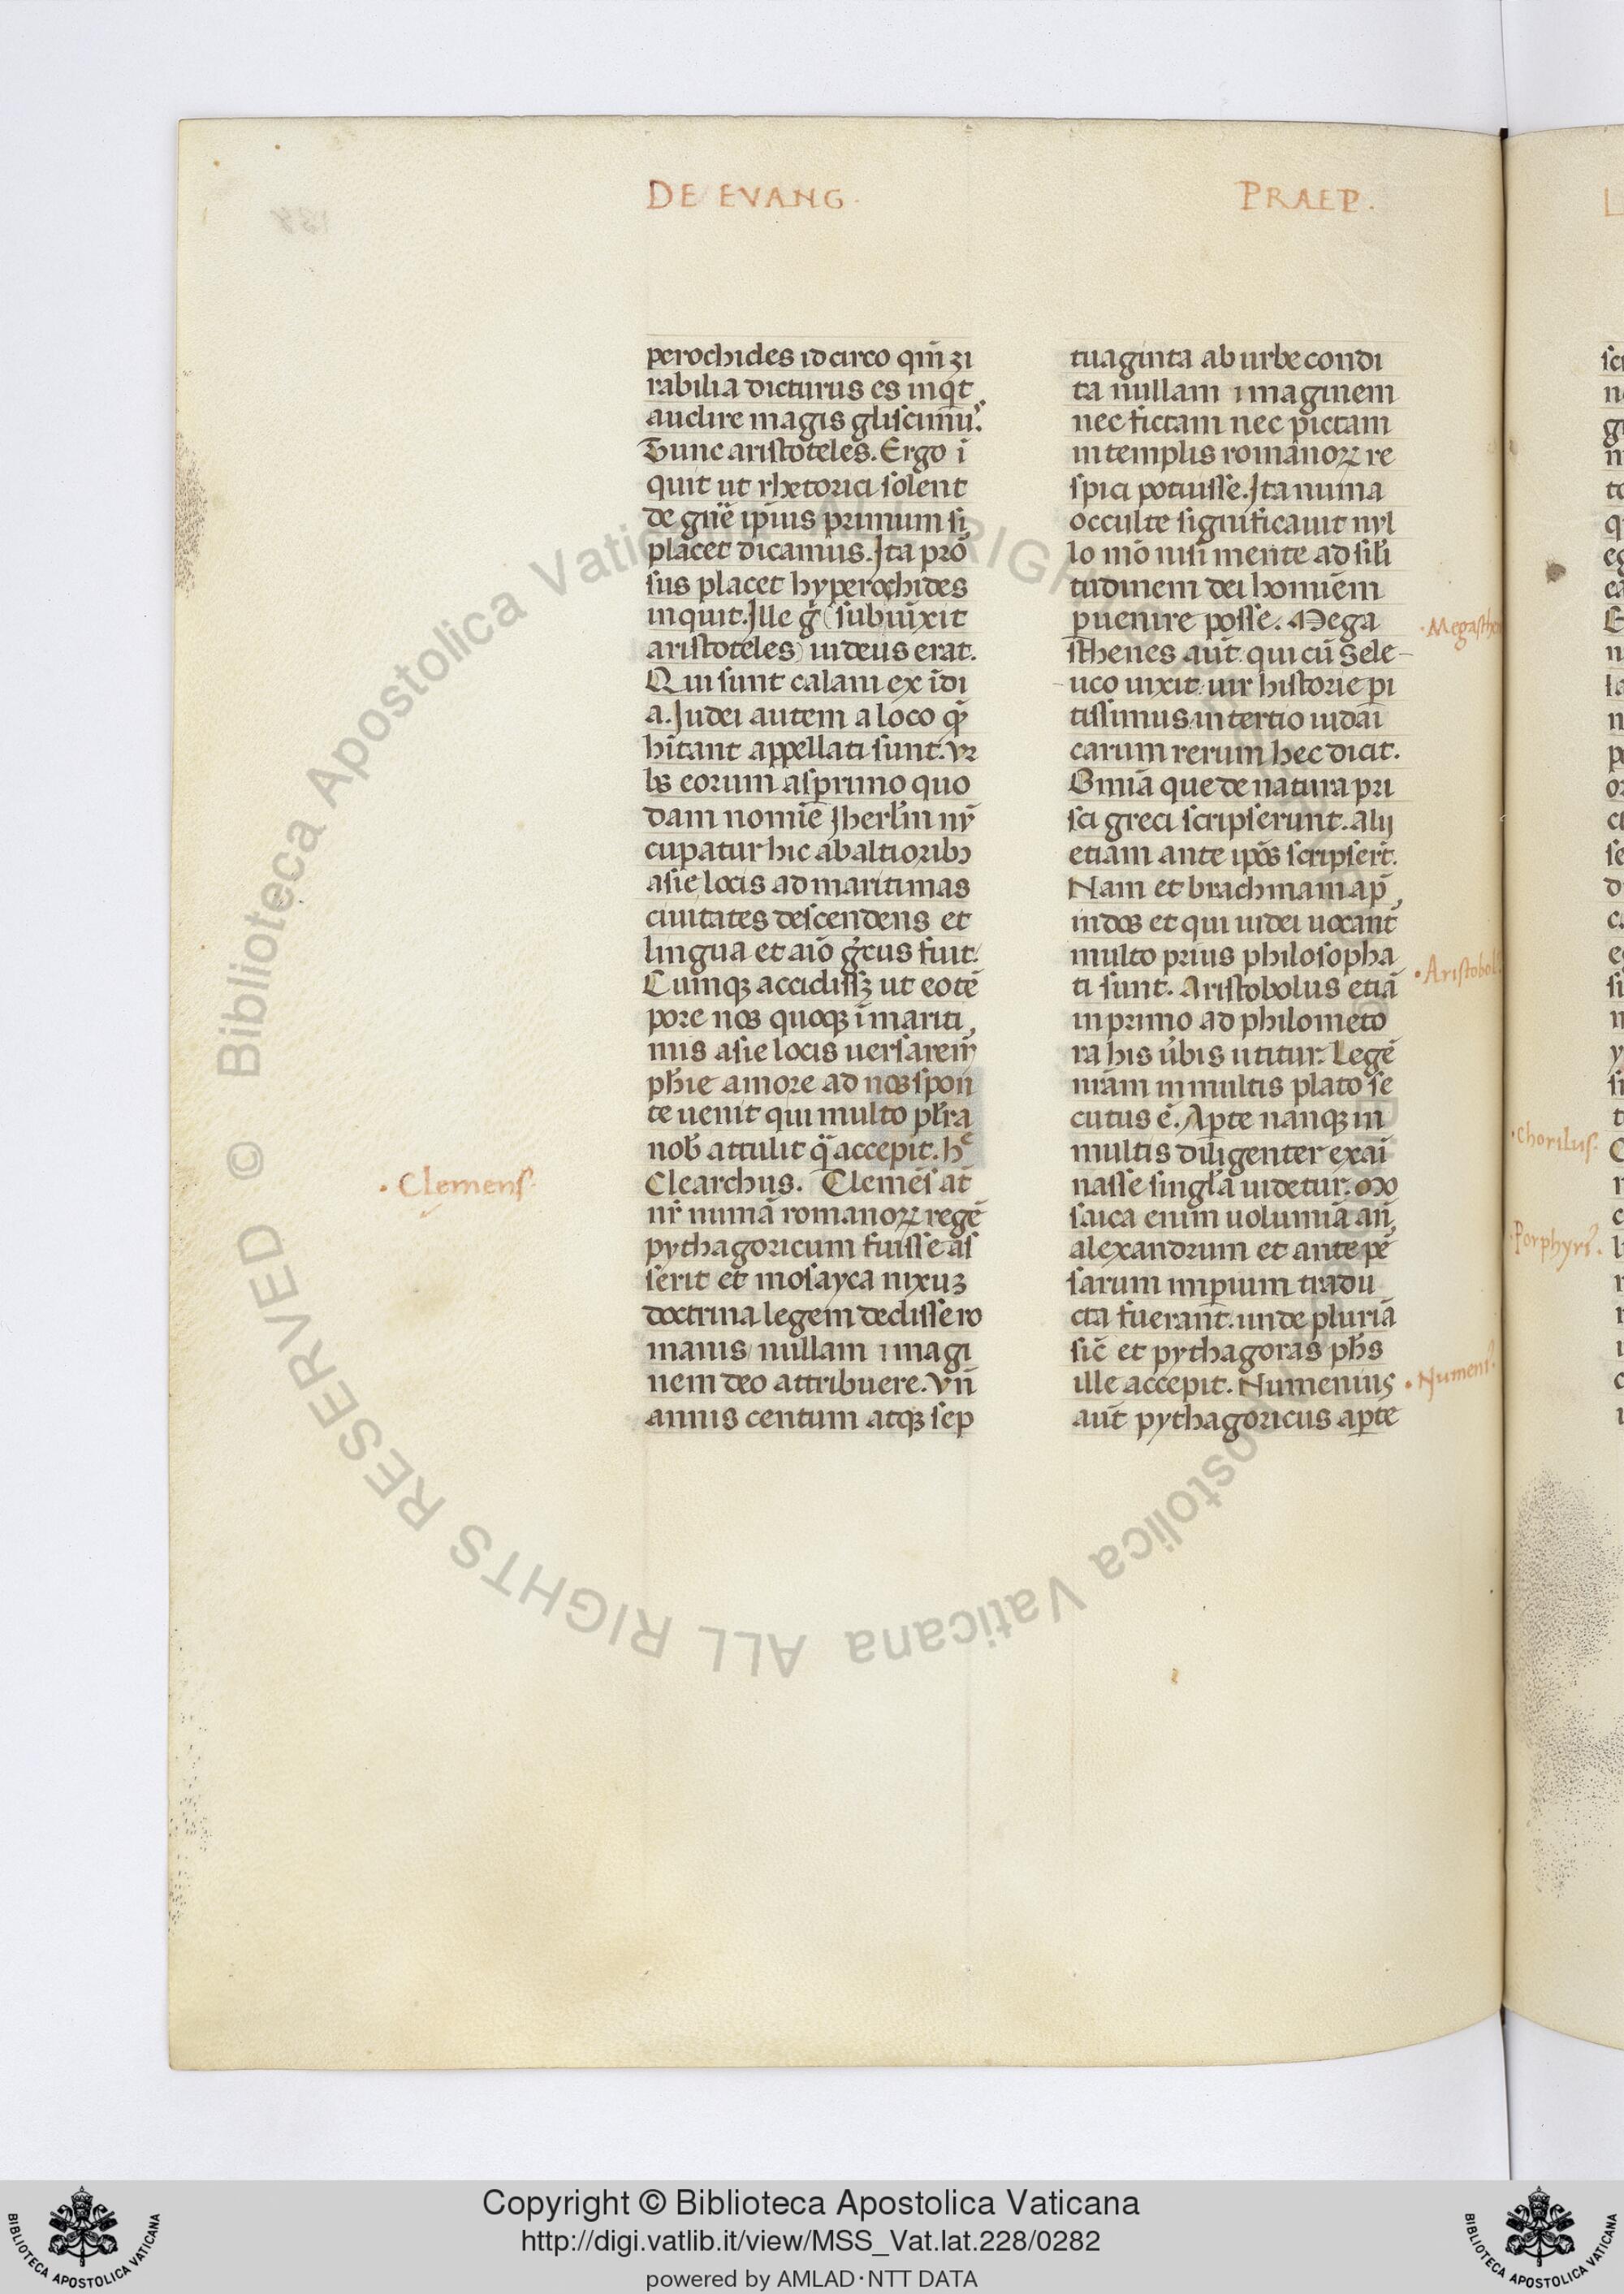 DE EVANG. PRAEP.
perochides idcirco qm̄ zi
rabilia dicturus es inqͥt
audire magis gliscimꝰ.
Tunc aristoteles. Ergo ī
quit ut rhetorici solent
de gn̄e ip̄ius primum si
placet dicamus. Ita prō
sus placet hyperochides
inquit. Ille gͦ (subuīxit
aristoteles) iudeus erat.
Qui sunt calani ex īdi
a. Iudei autem a loco quē
hītant appellati sunt. Vr
bs eorum aspriino quo
dam nomīe Iherl̄m nū
cupatur hic ab altioribꝫ
asie locis ad maritimas
ciuitates descendens et
lingua et aīo grͨcus fuit.
Cumqꝫ accidissꝫ ut eo tē
pore nos quoqꝫ ī mariti
mis asie locis uersarem̄r
ph̄ie amore ad nos spon
te uenit qui multo pl̄ra
nob̄ attulit qͣ̄ accepit. hͨ
Clearchus. Clemēs at̄
nr̄ numā romanoꝝ regē
pythagoricum fuisse as
serit et mosayca nixuꝫ
doctrina legem dedisse ro
manis nullam imagi
nem deo attribuere. Vn̄
annis centum atqꝫ sep
· Clemens ·
tuaginta ab urbe condi
ta nullam imaginem
nec fictam nec pictam
in templis romanoꝝ re
spici potuisse. Ita numa
occulte significauit nyl
lo mō nisi mente ad sil̄i
tudinem dei homīem
ꝑuenire posse. Mega
sthenes aūt qui cū Sele-
uco uixit uir historie pi
tissimus in tertio iudai
carum rerum hec dicit.
Omīa que de natura pri
sci greci scripserunt. alij
etiam ante ip̄os scripser̄t.
Nam et brachmani ap̄
indos et qui iudei uocant̄
multo prius philosopha
ti sunt. Aristobolus etiā
in primo ad philometo
ra his u̓bis utitur. Legē
nr̄am in multis plato se
cutus ē. Aꝑte nanqꝫ in
multis diligenter exai
nasse singl̄a uidetur. Mo
saica enim uolumīa an̄
alexandrum et ante pē
sarum imꝑium tradu
cta fuerant. unde plurīa
sic̄ et pythagoras ph̄s
ille accepit. Numenius
aūt pythagoricus aꝑte
· Aristobol
· Chorilus.
Porphyrꝰ.
· Numenꝰ.
© Biblioteca Apostolica Vaticana ALL RIGHTS RESERVED
Copyright © Biblioteca Apostolica Vaticana
http://digi.vatlib.it/view/MSS_Vat.lat.228/0282
powered by AMLAD·NTT DATA
BIBLIOTECA APOSTOLICA VATICANA
BIBLIOTECA APOSTOLICA VATICANA